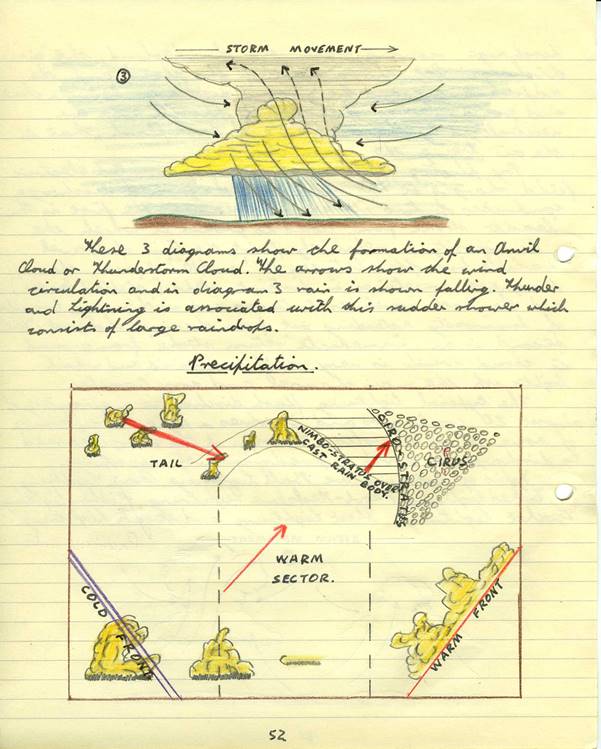 STORM MOVEMENT
3
These 3 diagrams show the formation of an Anvil
Cloud or Thunderstorm Cloud. The arrows show the wind
circulation and in diagram 3 rain is shown falling. Thunder
and Lightning is associated with this sudden shower which
consists of large raindrops.
Precipitation.
TAIL
NIMBO-STRATUS OVER
CAST RAIN BODY.
CIRO-STRATUS
CIRUS
WARM
SECTOR.
COLD FRONT
WARM FRONT
52